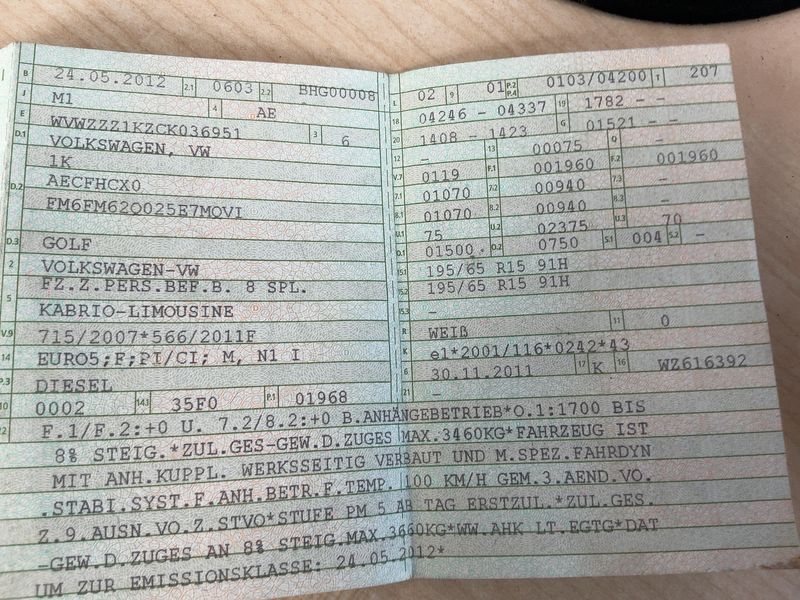 B 24.05.2012 2.1 0603 2.2 BHG00008
J M1 4 AE
E WVWZZZ1KZCK036951 3 6
D.1 VOLKSWAGEN, VW
1K
D.2 AECFHCX0
FM6FM62Q025E7MQVI
D.3 GOLF
2 VOLKSWAGEN-VW
5 FZ.Z.PERS.BEF.B. 8 SPL.
KABRIO-LIMOUSINE
V.9 715/2007*566/2011F
14 EURO5;F;PI/CI; M, N1 I
P.3 DIESEL
10 0002 14.1 35F0 P.1 01968
L 02 9 01 P.2 P.4 0103/04200 T 207
18 04246 - 04337 19 1782 - -
20 1408 - 1423 G 01521 - -
12 - 13 00075 Q -
V.7 0119 F.1 001960 F.2 001960
7.1 01070 7.2 00940 7.3 -
8.1 01070 8.2 00940 8.3 -
U.1 75 U.2 02375 U.3 70
O.1 01500 O.2 0750 S.1 004 S.2 -
15.1 195/65 R15 91H
15.2 195/65 R15 91H
15.3 -
R WEIß 11 0
K e1*2001/116*0242*43
6 30.11.2011 17 K 16 WZ616392
21 -
22 F.1/F.2:+0 U. 7.2/8.2:+0 B.ANHÄNGEBETRIEB*O.1:1700 BIS
8% STEIG.*ZUL.GES-GEW.D.ZUGES MAX.3460KG*FAHRZEUG IST
MIT ANH.KUPPL. WERKSSEITIG VERBAUT UND M.SPEZ.FAHRDYN
.STABI.SYST.F.ANH.BETR.F.TEMP. 100 KM/H GEM.3.AEND.VO.
Z.9.AUSN.VO.Z.STVO*STUFE PM 5 AB TAG ERSTZUL.*ZUL.GES.
-GEW.D.ZUGES AN 8% STEIG.MAX.3660KG*WW.AHK LT.EGTG*DAT
UM ZUR EMISSIONSKLASSE: 24.05.2012*